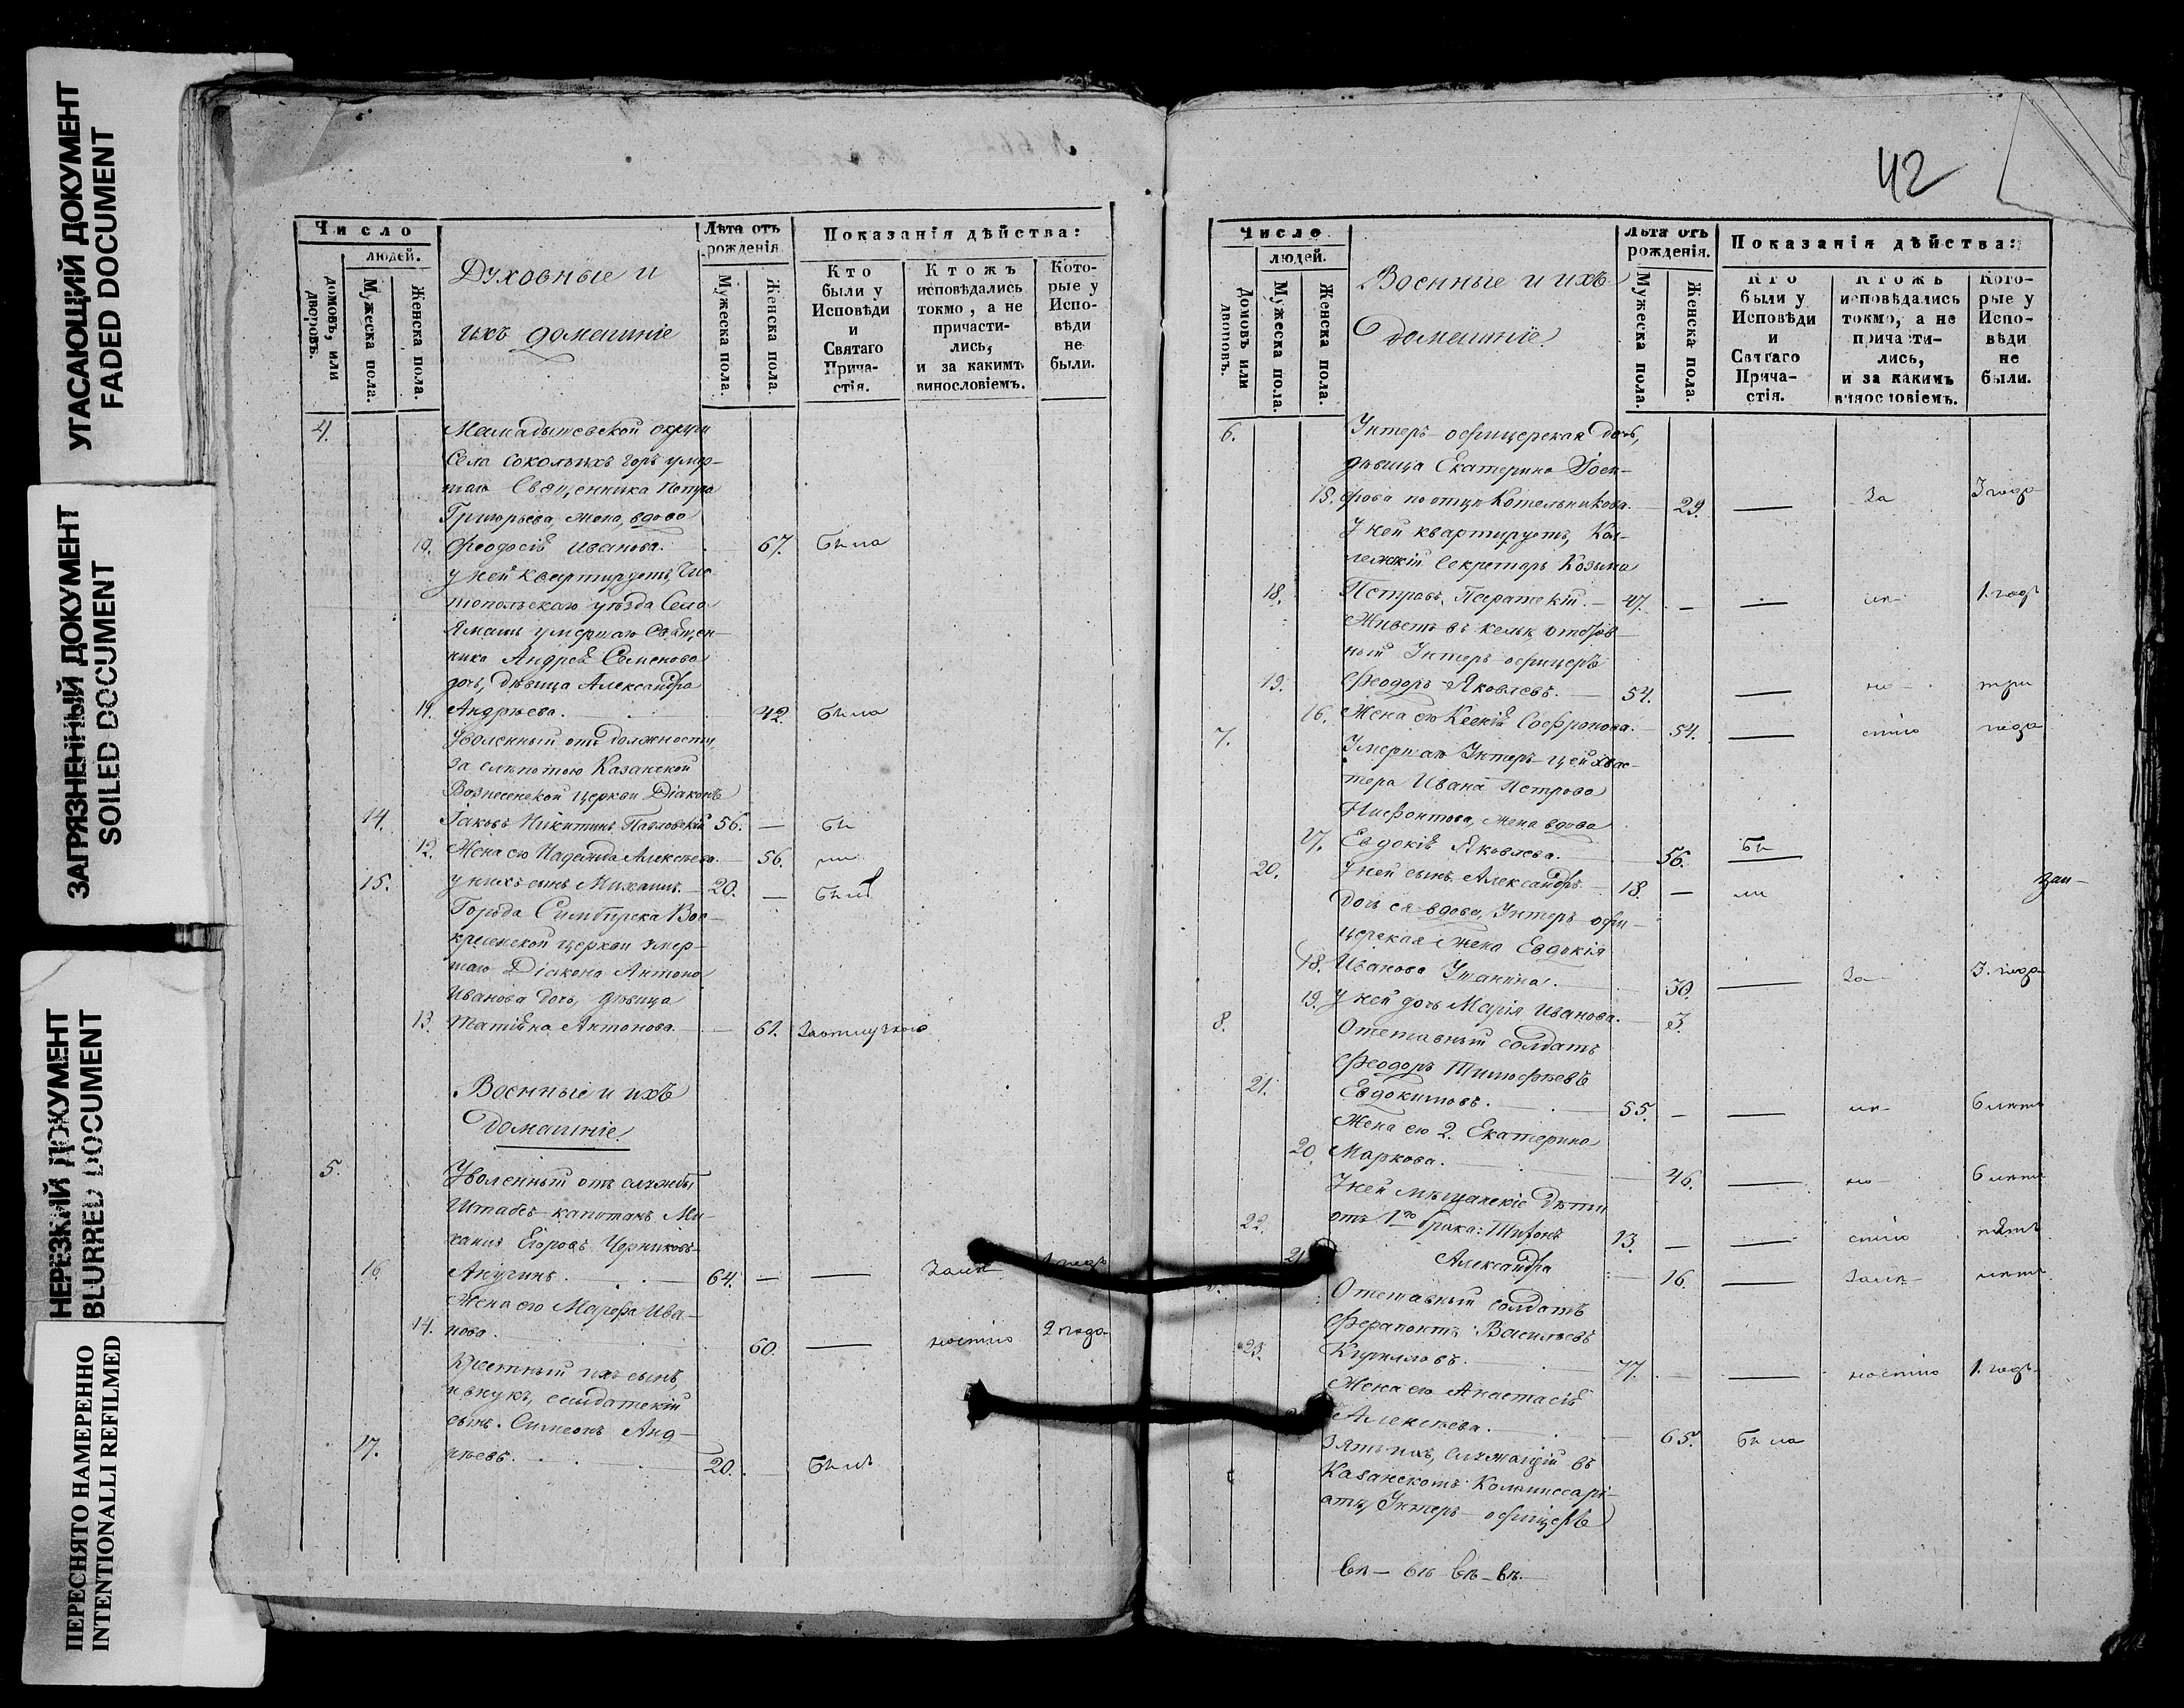 УГАСАЮЩИЙ ДОКУМЕНТ
FADED DOCUMENT
ЗАГРЯЗНЕННЫЙ ДОКУМЕНТ
SOILED DOCUMENT
НЕРЕЗКИЙ ДОКУМЕНТ
BLURRED DOCUMENT
ПЕРЕСНЯТО НАМЕРЕННО
INTENTIONALLI REFILMED
Число
людей.
домовъ, или дворовъ.
Мужеска пола.
Женска пола.
Духовные и
ихъ домашніе
Лѣта отъ рожденія.
Мужеска пола.
Женска пола.
Показанія дѣйства:
Кто были у Исповѣди и Святаго Прича-стія.
Ктожъ исповѣдались токмо, а не причасти-лись, и за какимъ винословіемъ.
Кото-рые у Испо-вѣди не были.
4. Мамадышевской округи
Села Сокольихъ горъ умер-
шаго Священника Петра
Григорьева, жена, вдова
10. Феодосія Иванова. 67. Была
у ней квартируетъ, Чис-
топольскаго уѣзда Села
умершаго Священ-
ника Андрея Семенова
дочь, дѣвица Александра
11. Андреева. 42. Была
Уволенный отъ должности,
за слѣпотою Казанской
Вознесенской церкви Діаконъ
14. Іаковъ Никитинъ Павловскій 56. — Бы
12. Жена его Надежда Алексѣева. — 56. ли
15. у нихъ сынъ Михаилъ. — 20. — Былъ
Города Симбирска Вос-
кресенской церкви умер-
шаго Діакона Антона
Иванова дочь, дѣвица
13. Татіана Антонова. — 61. За отлучкою
Военные и ихъ
домашніе.
5. Уволенный отъ службы
Штабсъ-капитанъ Ми-
хаилъ Егоровъ Черниковъ-
16. Анучинъ. 64. — — Замѣ 1 годъ
Жена его Марѳа Ива-
14. нова. 60. — ностію 2 года
Крестный ихъ сынъ,
и внукъ, солдатскій
сынъ. Симеонъ Анд-
17. рѣевъ. 20. Былъ
42
Число
людей.
домовъ или дворовъ.
Мужеска пола.
Женска пола.
Военные и ихъ
домашніе.
Лѣта отъ рожденія.
Мужеска пола.
Женска пола.
Показанія дѣйства:
Кто были у Исповѣди и Святаго Прича-стія.
Ктожъ исповѣдались токмо, а не причасти-лись, и за какимъ винословіемъ.
Кото-рые у Испо-вѣди не были.
6. Унтеръ-офицерская дочь,
дѣвица Екатерина Іоси-
15. фова по отцу Котельникова. 29. — За 3 года
У ней квартируетъ, Кол-
лежскій Секретарь Козьма
18. Петровъ — 47. — — лѣ 1. годъ
Живетъ въ кельи, отстав-
ный Унтеръ офицеръ
19. Феодоръ Яковлевъ. — 54. — но три
16. Жена его Ксенія Софронова. 54. — стію года
7. Умершаго Унтеръ-цейхвас-
тера Ивана Петрова
Нифонтова, жена вдова
17. Евдокія Яковлева. 56. Бы
20. У ней сынъ Александръ. 18. — ли
Дочь ея вдова, Унтеръ-офи-
церская жена Евдокія
18. Иванова Ушанина. 30. — За 3. года
19. У ней дочь Марія Иванова. 3.
8. Отставный солдатъ
Феодоръ Тимофѣевъ
21. Евдокимовъ. 55. — — лѣ 6 лѣтъ
Жена его 2. Екатерина
20. Маркова. 46. — но 6 лѣтъ
У ней мѣщанскіе дѣти
22. отъ 1го брака: Тихонъ 13. — — стію пять
21. Александра 16. — Замѣ лѣтъ
Отставный солдатъ
Ферапонтъ Васильевъ
23. Кирилловъ. 77. — — ностію 1. годъ
Жена его Анастасія
Алексѣева. 65. Была
Зять ихъ, служащій въ
Казанскомъ Коммиссарі-
атѣ, Унтеръ-офицеръ